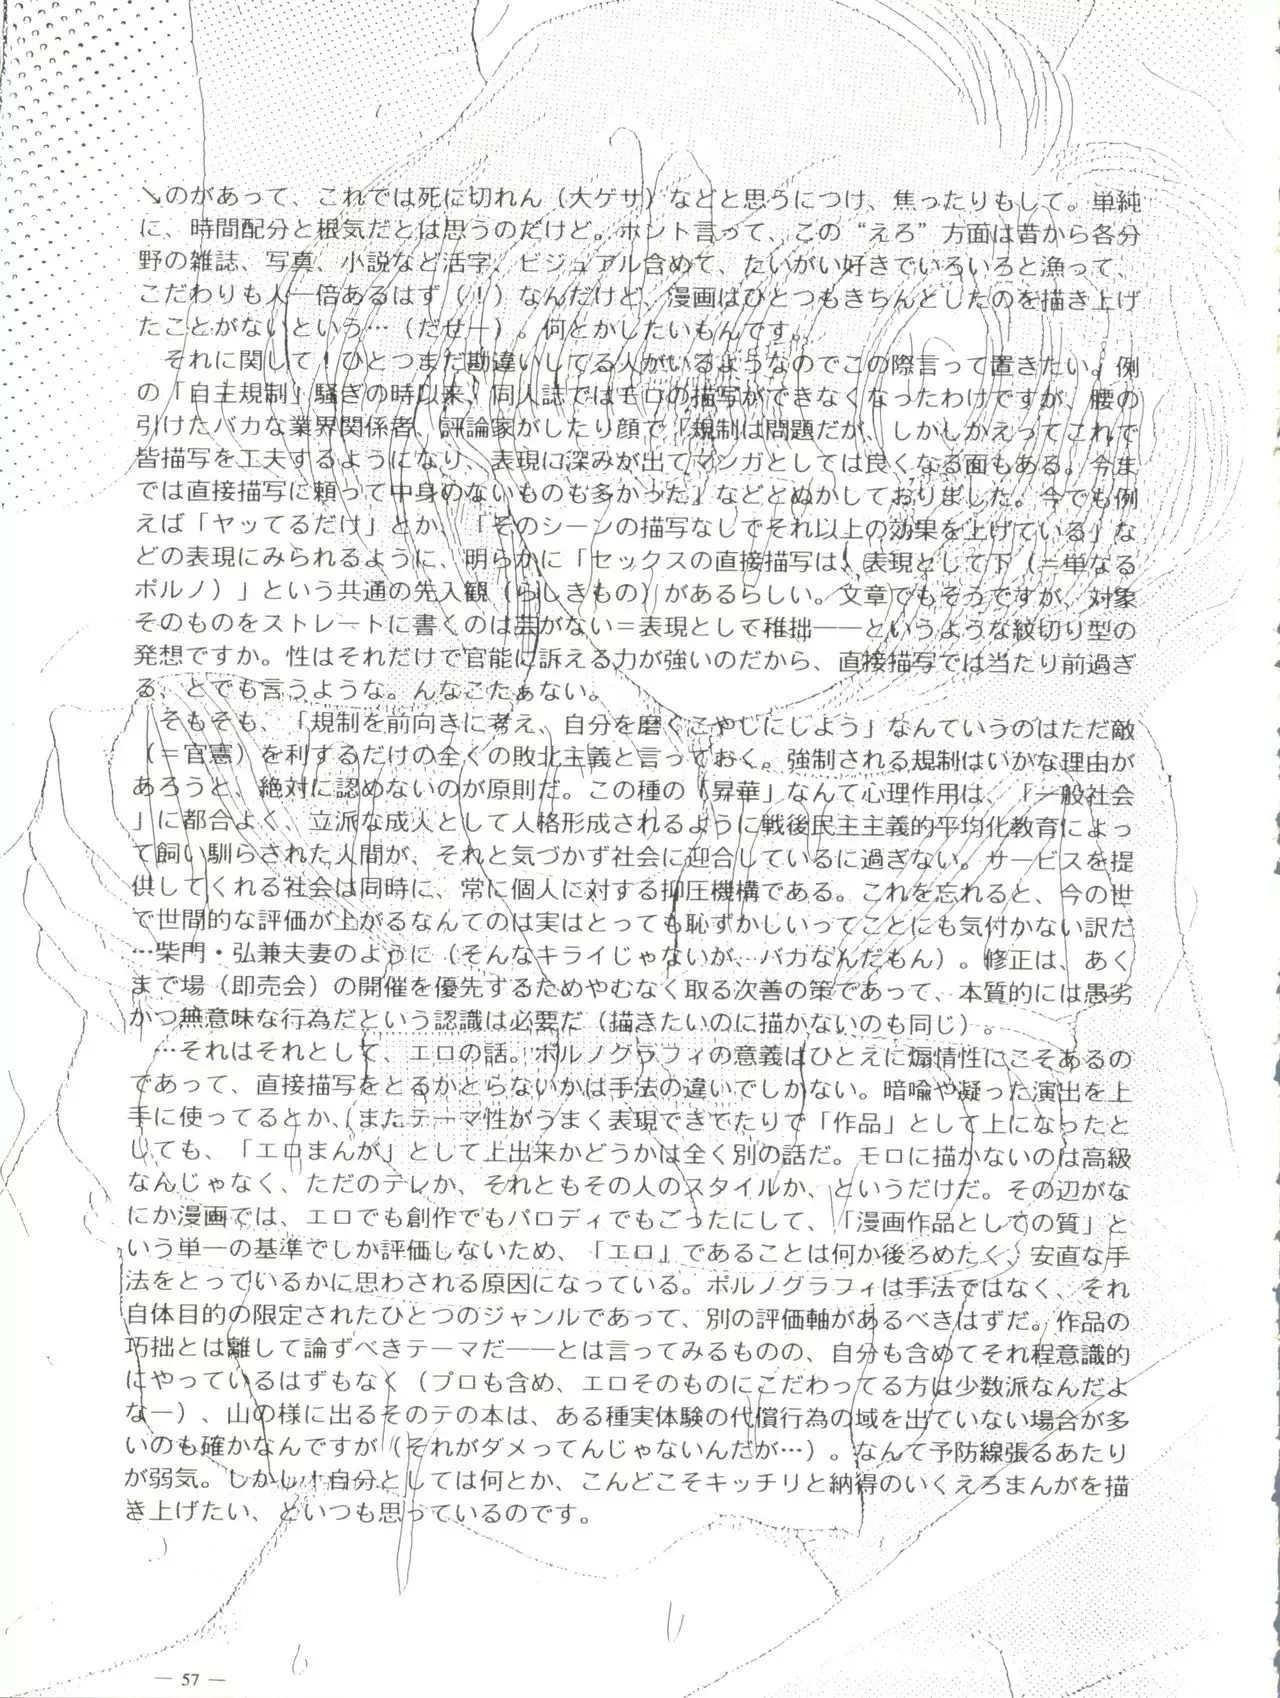 ↘のがあって、これでは死に切れん（大ゲサ）などと思うにつけ、焦ったりもして。単純
に、時間配分と根気だとは思うのだけど。ホント言って、この“えろ”方面は昔から各分
野の雑誌、写真、小説など活字、ビジュアル含めて、たいがい好きでいろいろと漁って、
こだわりも人一倍あるはず（！）なんだけど、漫画はひとつもきちんとしたのを描き上げ
たことがないという…（だせー）。何とかしたいもんです。
　それに関して！ひとつまだ勘違いしてる人がいるようなのでこの際言って置きたい。例
の「自主規制」騒ぎの時以来、同人誌ではモロの描写ができなくなったわけですが、腰の
引けたバカな業界関係者、評論家がしたり顔で「規制は問題だが、しかしかえってこれで
皆描写を工夫するようになり、表現に深みが出てマンガとしては良くなる面もある。今ま
では直接描写に頼って中身のないものも多かった」などとぬかしておりました。今でも例
えば「ヤッてるだけ」とか、「そのシーンの描写なしでそれ以上の効果を上げている」な
どの表現にみられるように、明らかに「セックスの直接描写は、表現として下（＝単なる
ポルノ）」という共通の先入観（らしきもの）があるらしい。文章でもそうですが、対象
そのものをストレートに書くのは芸がない＝表現として稚拙――というような紋切り型の
発想ですか。性はそれだけで官能に訴える力が強いのだから、直接描写では当たり前過ぎ
る、とでも言うような。んなこたぁない。
　そもそも、「規制を前向きに考え、自分を磨くこやしにしよう」なんていうのはただ敵
（＝官憲）を利するだけの全くの敗北主義と言っておく。強制される規制はいかな理由が
あろうと、絶対に認めないのが原則だ。この種の「昇華」なんて心理作用は、「一般社会
」に都合よく、立派な成人として人格形成されるように戦後民主主義的平均化教育によっ
て飼い馴らされた人間が、それと気づかず社会に迎合しているに過ぎない。サービスを提
供してくれる社会は同時に、常に個人に対する抑圧機構である。これを忘れると、今の世
で世間的な評価が上がるなんてのは実はとっても恥ずかしいってことにも気付かない訳だ
…柴門・弘兼夫妻のように（そんなキライじゃないが、バカなんだもん）。修正は、あく
まで場（即売会）の開催を優先するためやむなく取る次善の策であって、本質的には愚劣
かつ無意味な行為だという認識は必要だ（描きたいのに描かないのも同じ）。
　…それはそれとして、エロの話。ポルノグラフィの意義はひとえに煽情性にこそあるの
であって、直接描写をとるかとらないかは手法の違いでしかない。暗喩や凝った演出を上
手に使ってるとか、（またテーマ性がうまく表現できてたりで「作品」として上になったと
しても、「エロまんが」として上出来かどうかは全く別の話だ。モロに描かないのは高級
なんじゃなく、ただのテレか、それともその人のスタイルか、というだけだ。その辺がな
にか漫画では、エロでも創作でもパロディでもごったにして、「漫画作品としての質」と
いう単一の基準でしか評価しないため、「エロ」であることは何か後ろめたく、安直な手
法をとっているかに思わされる原因になっている。ポルノグラフィは手法ではなく、それ
自体目的の限定されたひとつのジャンルであって、別の評価軸があるべきはずだ。作品の
巧拙とは離して論ずべきテーマだ――とは言ってみるものの、自分も含めてそれ程意識的
にやっているはずもなく（プロも含め、エロそのものにこだわってる方は少数派なんだよ
なー）、山の様に出るそのテの本は、ある種実体験の代償行為の域を出ていない場合が多
いのも確かなんですが（それがダメってんじゃないんだが…）。なんて予防線張るあたり
が弱気。しかし！自分としては何とか、こんどこそキッチリと納得のいくえろまんがを描
き上げたい、といつも思っているのです。
— 57 —